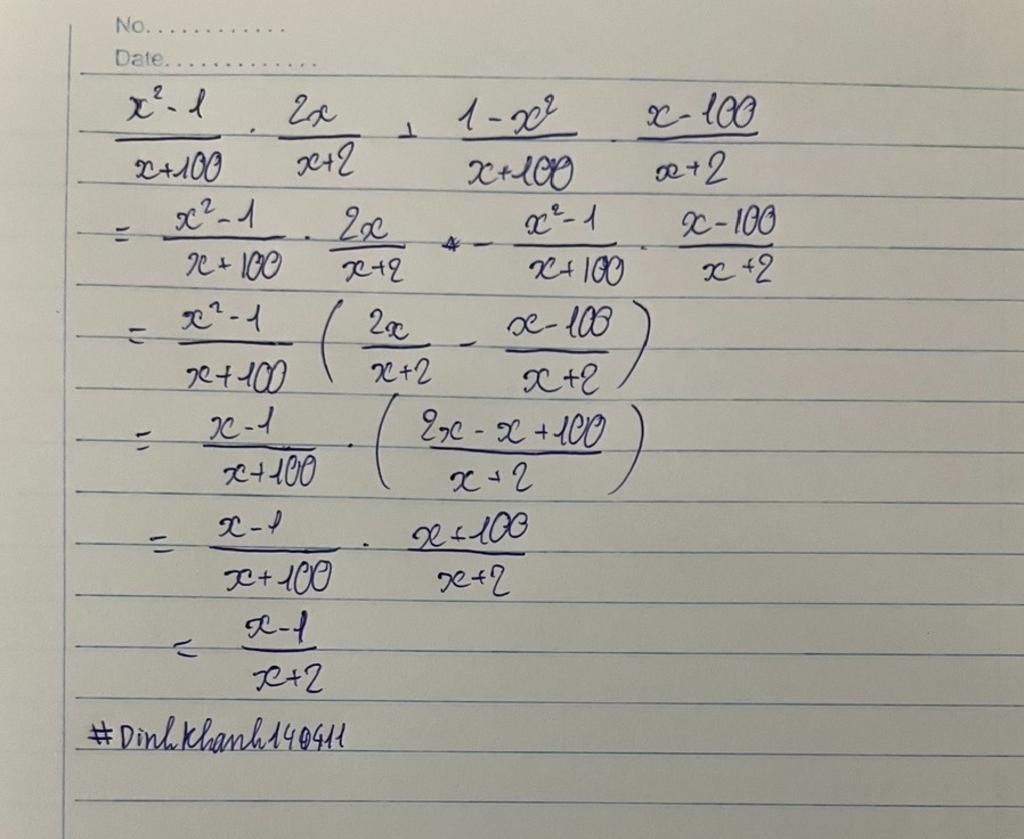 No............
Date.............
\frac{x^2-1}{x+100} . \frac{2x}{x+2} + \frac{1-x^2}{x+100} . \frac{x-100}{x+2}
= \frac{x^2-1}{x+100} . \frac{2x}{x+2} - \frac{x^2-1}{x+100} . \frac{x-100}{x+2}
= \frac{x^2-1}{x+100} ( \frac{2x}{x+2} - \frac{x-100}{x+2} )
= \frac{x-1}{x+100} . ( \frac{2x-x+100}{x+2} )
= \frac{x-1}{x+100} . \frac{x+100}{x+2}
= \frac{x-1}{x+2}
#DinhKhanh140411